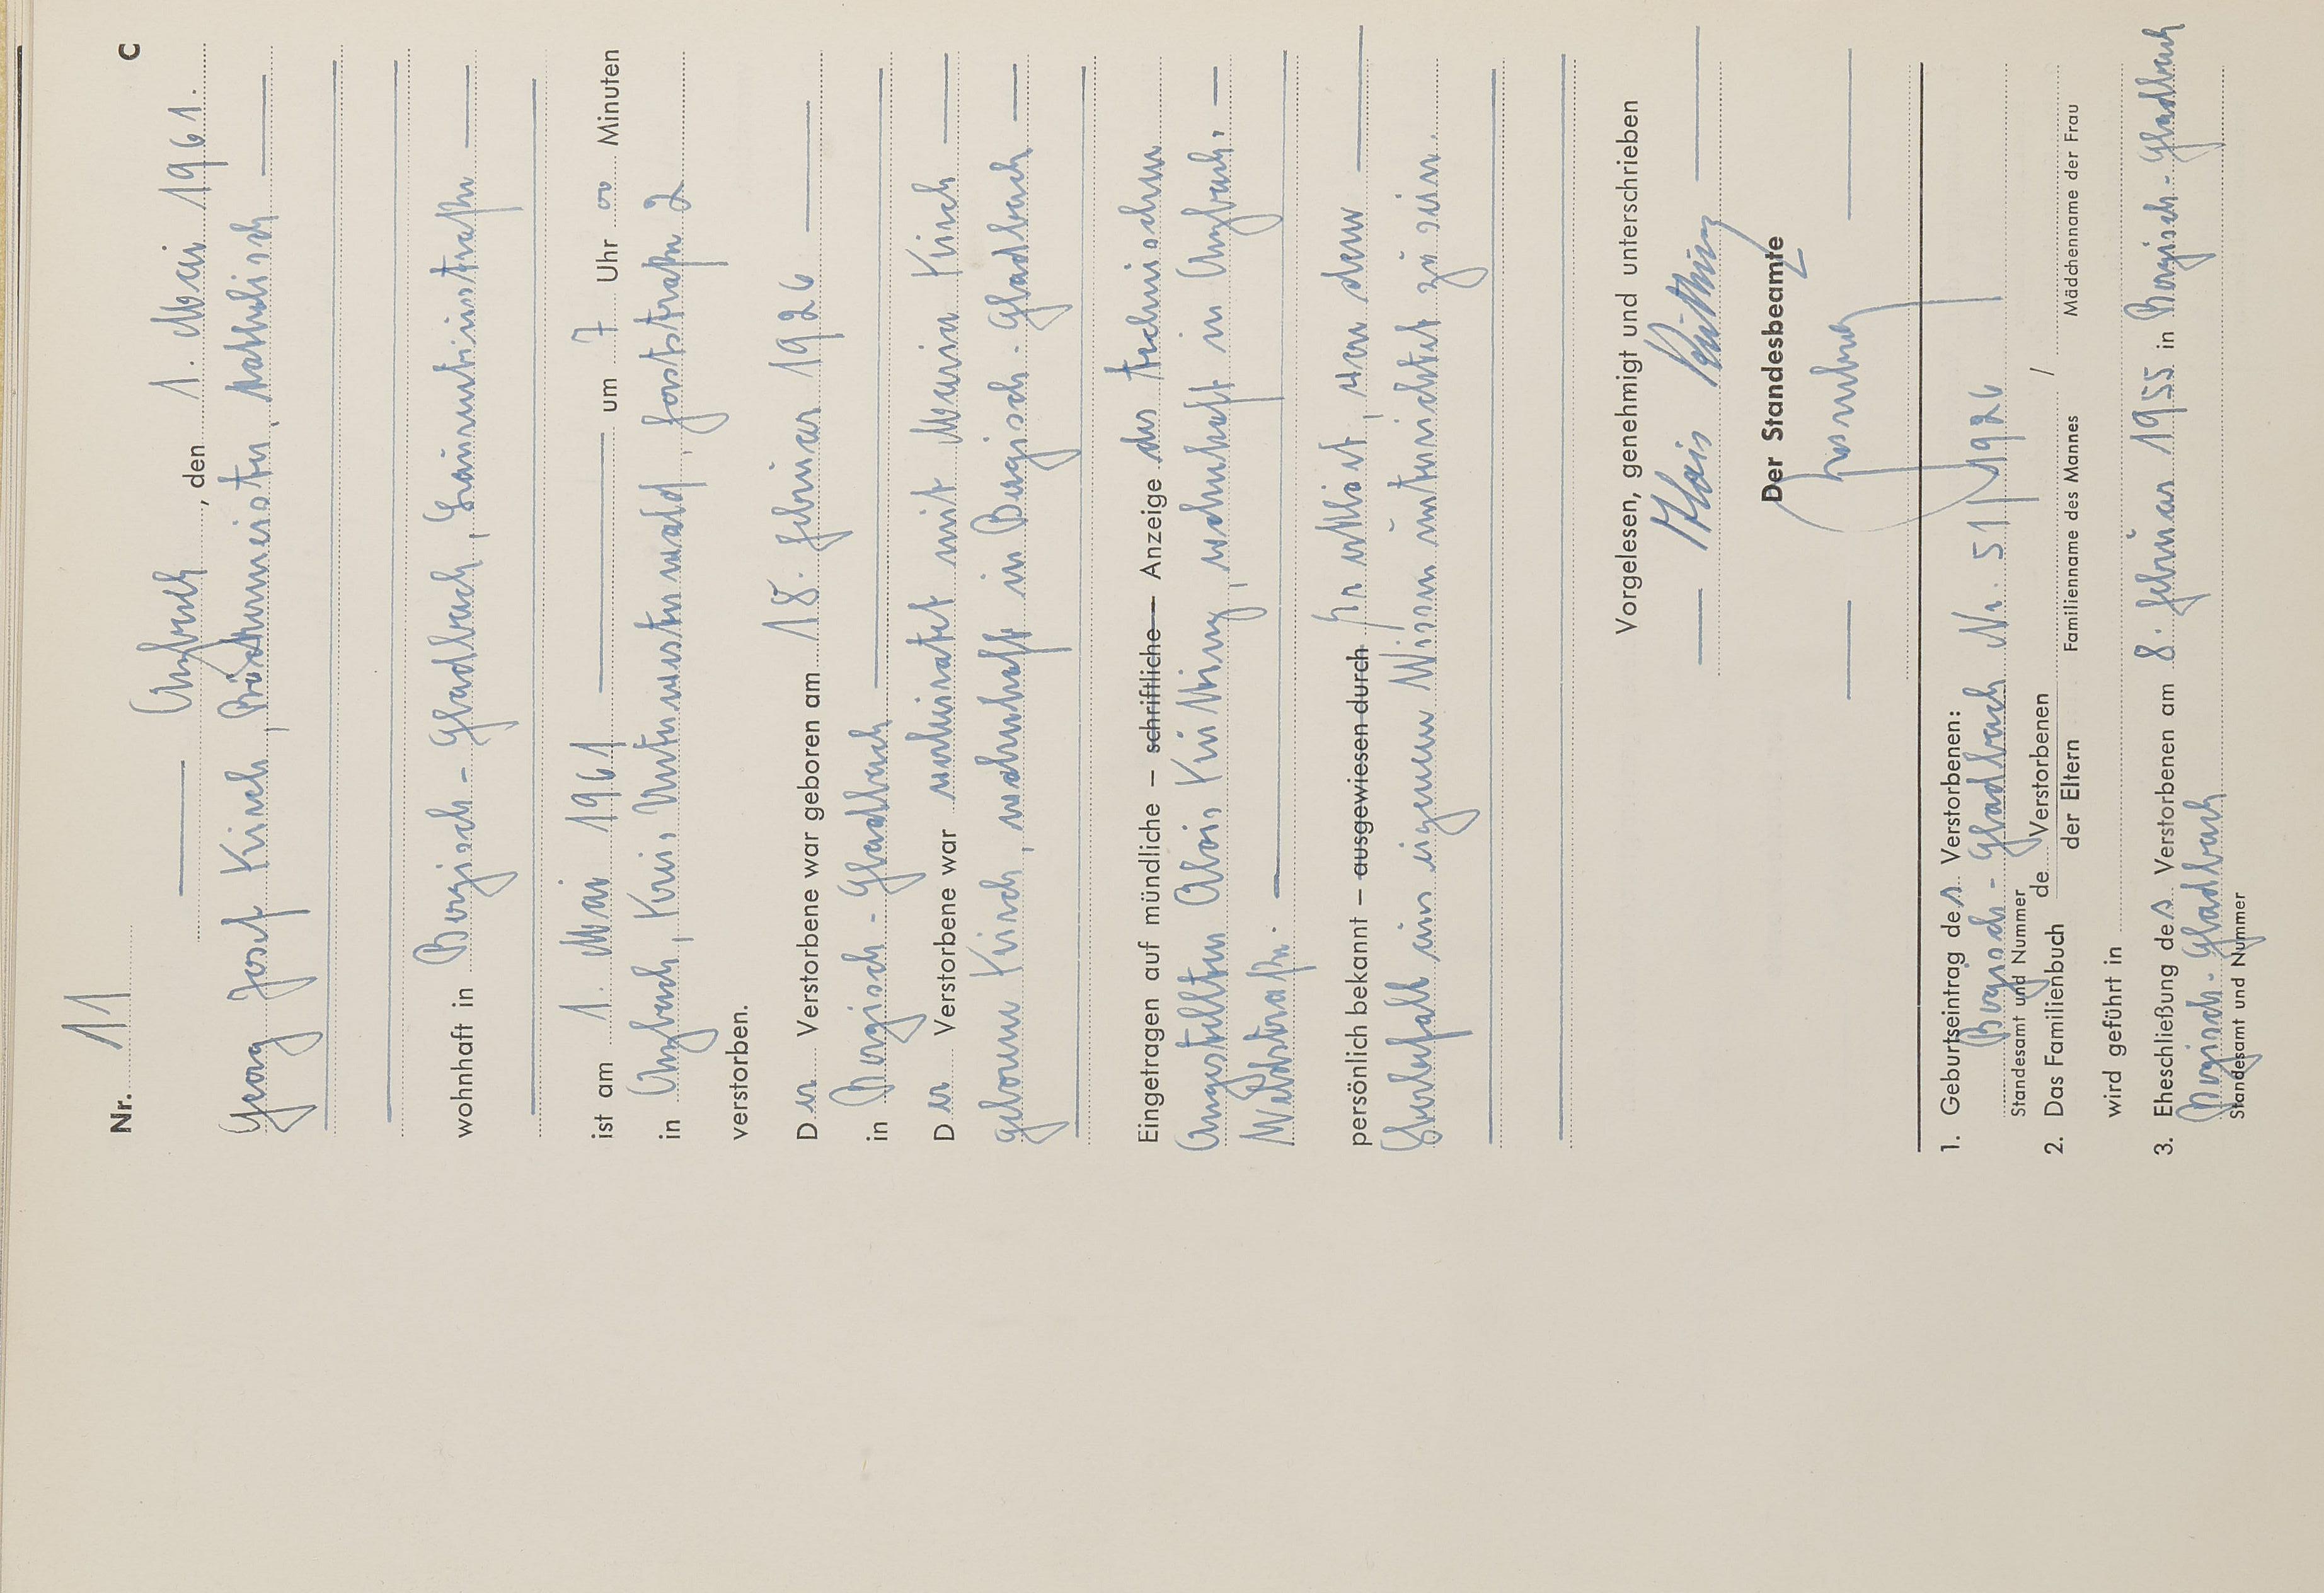 C
Nr. 11
Anzbach, den 1. Mai 1961.
Georg Josef Kirch, katholisch
wohnhaft in Bergisch-Gladbach,
ist am 1. Mai 1961 um 7 Uhr 00 Minuten
in Anzbach, Kreis Unterwesterwald, Forststraße 2
verstorben.
Der Verstorbene war geboren am 18. Februar 1926
in Bergisch-Gladbach
Der Verstorbene war verheiratet mit Maria Kirch
geborene Kirsch, wohnhaft in Bergisch-Gladbach
Eingetragen auf mündliche – schriftliche – Anzeige des technischen
Angestellten Alois, wohnhaft in Anzbach,
Waldstraße.
persönlich bekannt – ausgewiesen durch Er erklärt, von dem
Sterbefall aus eigenem Wissen unterrichtet zu sein.
Vorgelesen, genehmigt und unterschrieben
Alois
Der Standesbeamte
1. Geburtseintrag des Verstorbenen:
Bergisch-Gladbach Nr. 51/1926
Standesamt und Nummer
2. Das Familienbuch de Verstorbenen der Eltern /
Familienname des Mannes Mädchenname der Frau
wird geführt in
3. Eheschließung des Verstorbenen am 8. Februar 1955 in Bergisch-Gladbach
Bergisch-Gladbach
Standesamt und Nummer